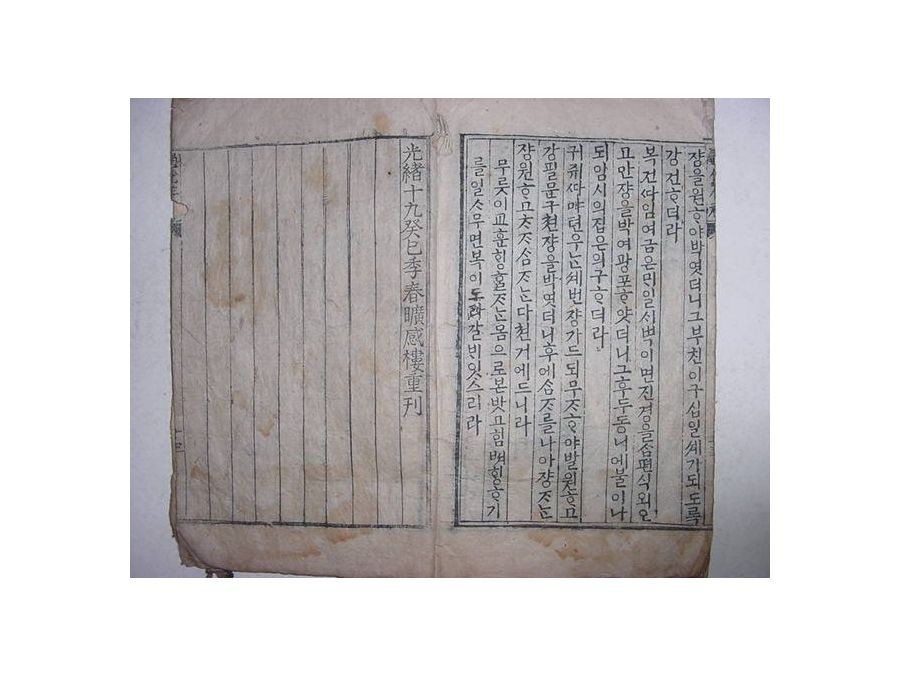 쟝을원ᄒᆞ야박엿더니그부친이구십일셰가되도록
강건ᄒᆞ더라
복건ᄯᅡ임여금은ᄆᆡ일ᄉᆡ벽이면진경을삼편식외오
고안쟝을박여광포ᄒᆞ얏더니그후두동ᄂᆡ에불이나
되암시의집은의구ᄒᆞ더라
귀쥬ᄯᅡ마텬우ᄂᆞᆫ셰번쟝가드되무ᄌᆞᄒᆞ야발원ᄒᆞ고
강필문구쳔쟝을박엿더니후에삼ᄌᆞ를나아쟝ᄌᆞᄂᆞᆫ
쟝원ᄒᆞ고ᄎᆞᄌᆞ삼ᄌᆞᄂᆞᆫ다쳔거에드니라
무릇이교훈ᄒᆡᆼᄒᆞᆯᄌᆞᄂᆞᆫ몸으로본밧고힘ᄡᅥᄒᆡᆼᄒᆞ기
를일ᄉᆞᆷ으면복이도라갈빈잇스리라
光緖十九癸巳季春曠感樓重刊